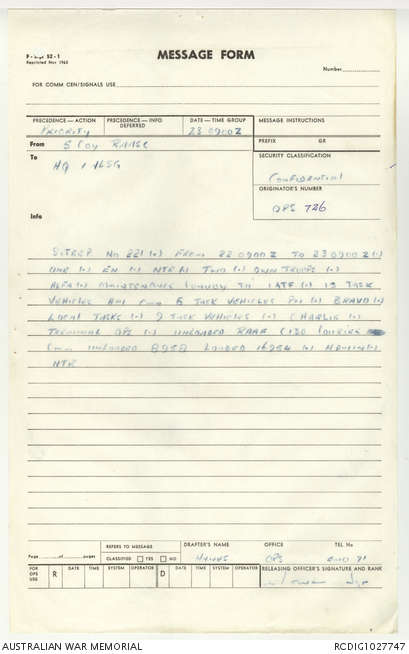 MESSAGE FORM
Reprinted Nov 1965
Number
FOR COMM CEN/SIGNALS USE
PRECEDENCE—ACTION
PRIORITY
PRECEDENCE—INFO
DEFERRED
DATE—TIME GROUP
230900Z
MESSAGE INSTRUCTIONS
PREFIX GR
From 5 Coy RAASC
To HQ 1 ALSG
SECURITY CLASSIFICATION
CONFIDENTIAL
ORIGINATOR'S NUMBER
OPS 726
Info
SITREP No 221 (.) FROM 220900Z TO 230900Z (.)
ONE (.) EN (.) NTR (.) TWO (.) OWN TROOPS (.)
ALFA (.) MAINTENANCE CONVOY TO 1ATF (.) 13 TASK
VEHICLES AM 6 TASK VEHICLES PM (.) BRAVO (.)
LOCAL TASKS (.) 9 TASK VEHICLES (.) CHARLIE (.)
TERMINAL OPS (.) UNLOADED RAAF C130
UNLOADED 8958 LOADED 16254 (.)
NTR
Page of pages
REFERS TO MESSAGE
CLASSIFIED YES NO
DRAFTER'S NAME
OFFICE
OPS
TEL No
FOR OPS USE
R
DATE TIME SYSTEM OPERATOR
D
DATE TIME SYSTEM OPERATOR
RELEASING OFFICER'S SIGNATURE AND RANK
AUSTRALIAN WAR MEMORIAL
RCDIG1027747